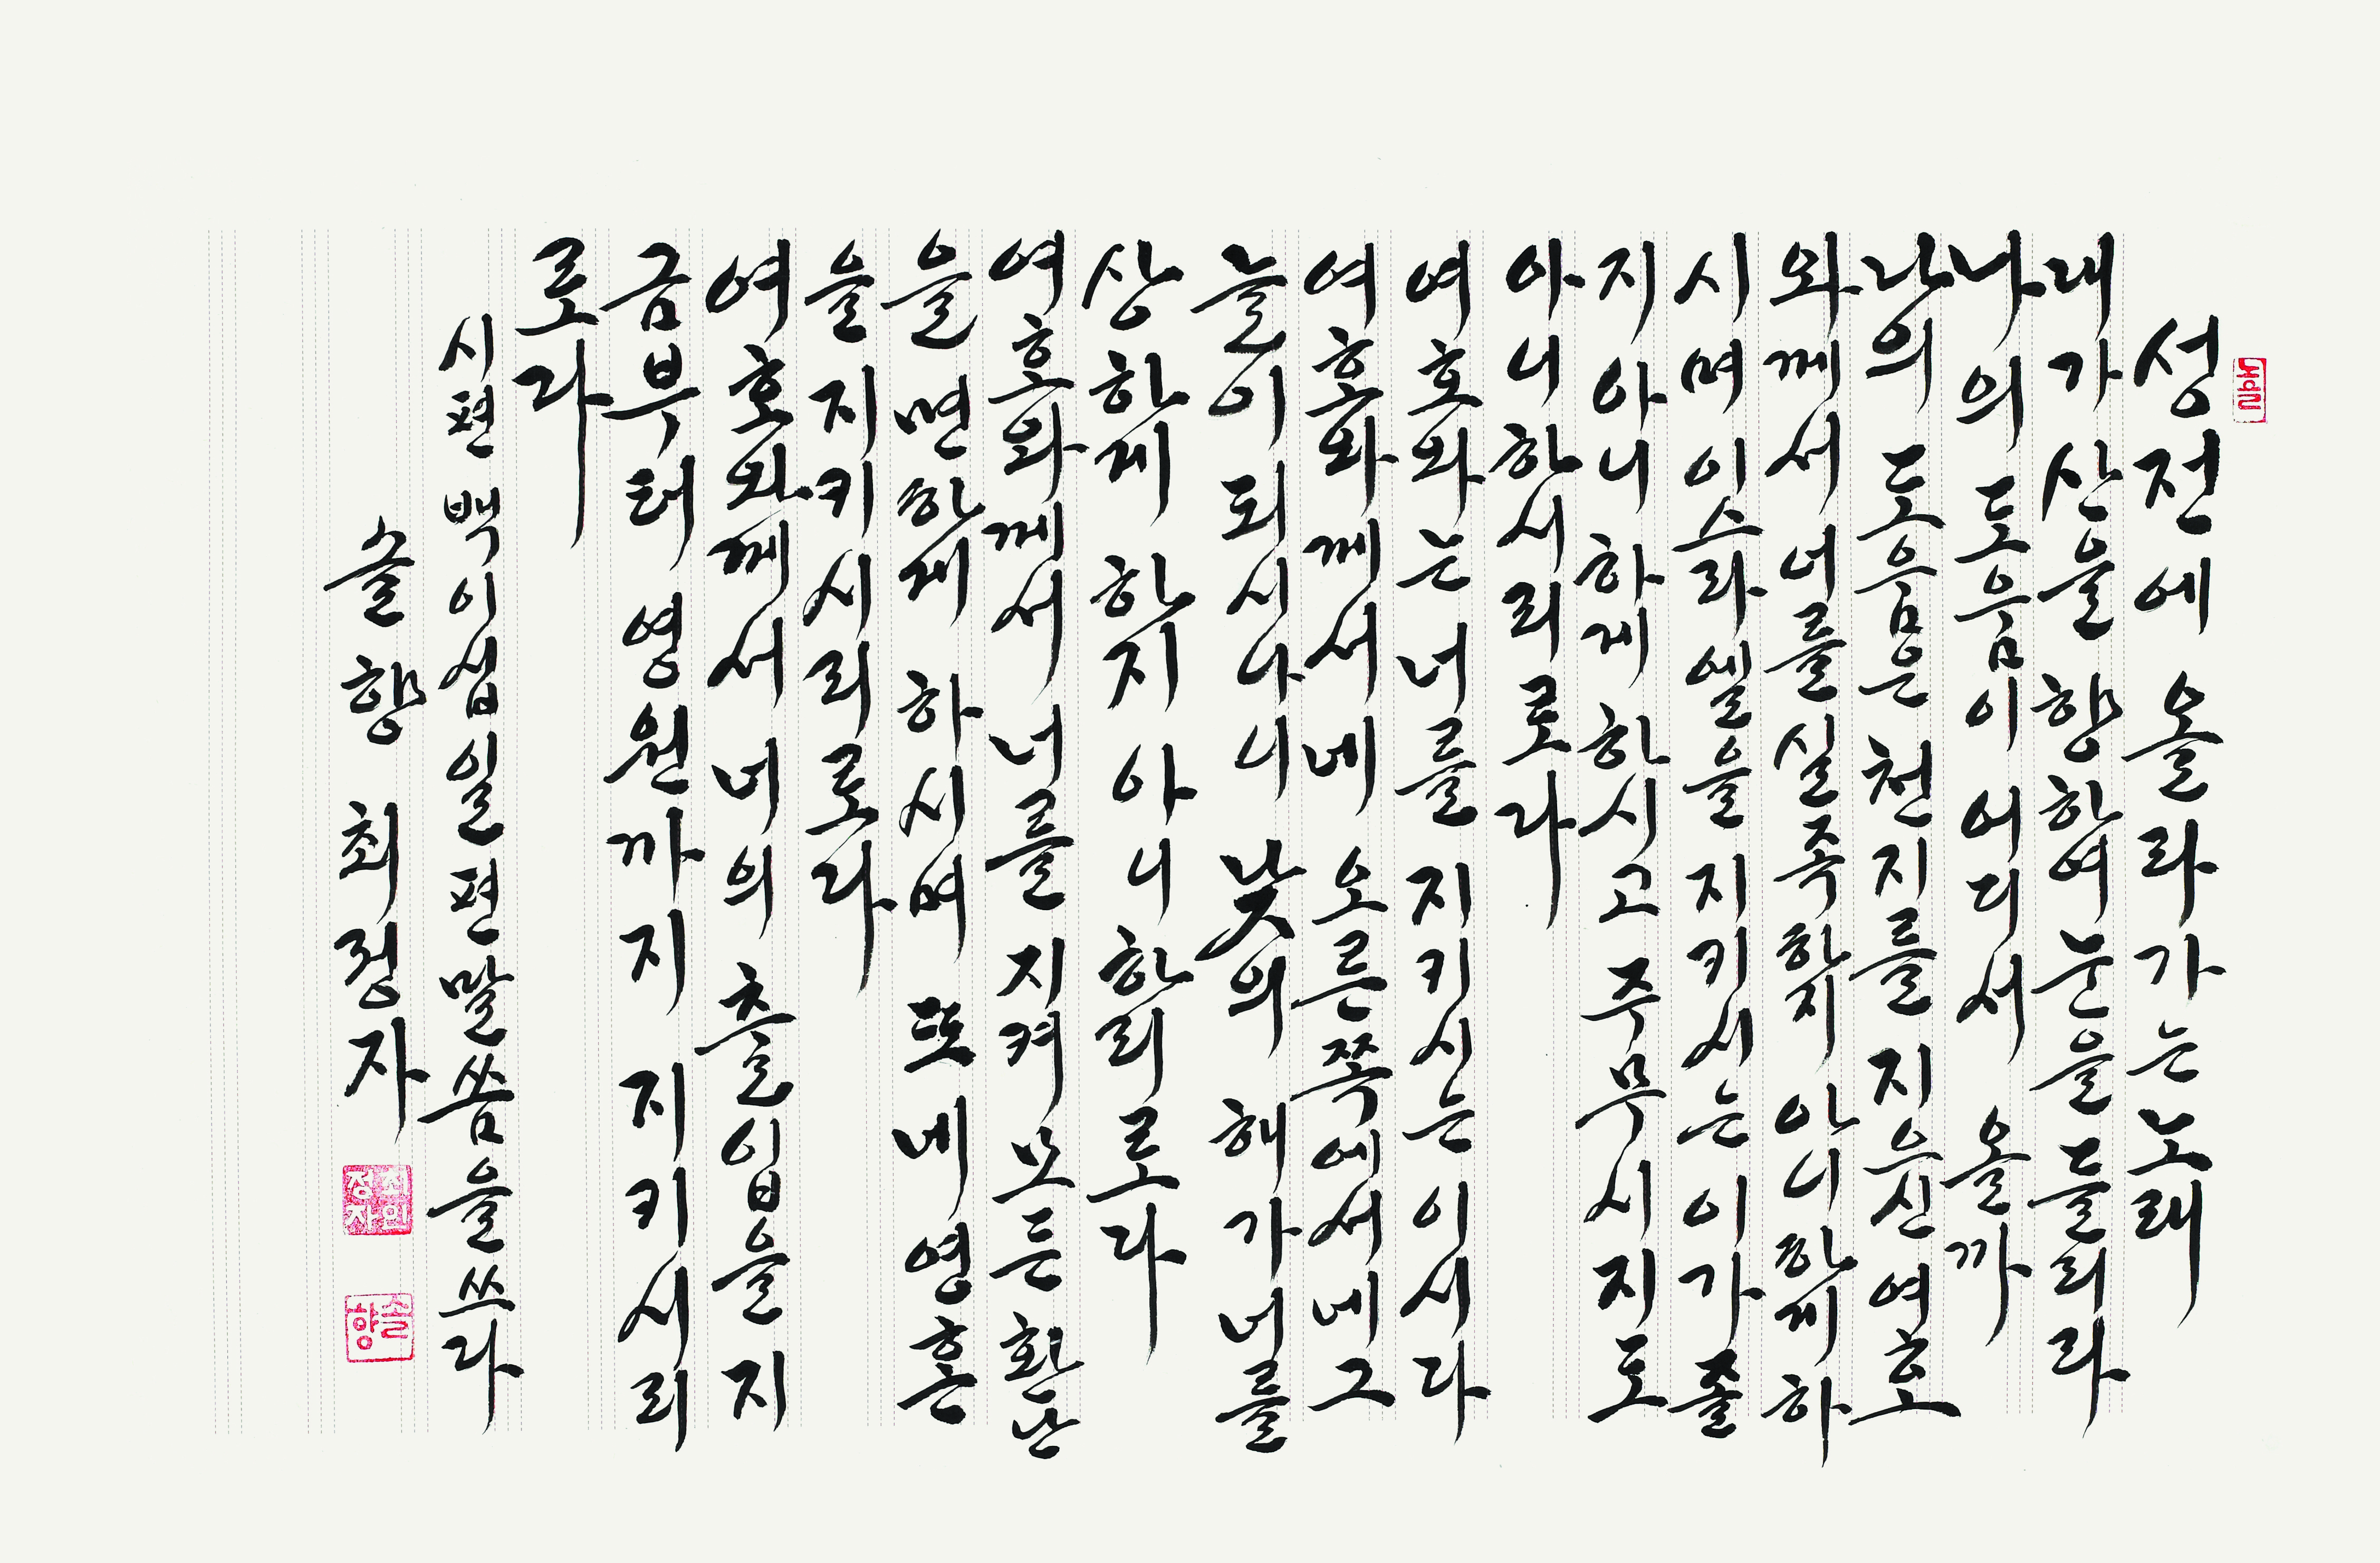 성전에 올라가는 노래
내가 산을 향하여 눈을 들리라
나의 도움이 어디서 올까
나의 도움은 천지를 지으신 여호
와께서 너를 실족하지 아니하게 하
시며 이스라엘을 지키시는 이가 졸
지 아니하게 하시고 주무시지도
아니하시리로다
여호와는 너를 지키시는 이시라
여호와께서 네 오른쪽에서 네 그
늘이 되시나니 낮의 해가 너를
상하게 하지 아니하리로다
여호와께서 너를 지켜 모든 환난
을 면하게 하시며 또 네 영혼
을 지키시리로다
여호와께서 너의 출입을 지
금부터 영원까지 지키시리
로다
시편 백이십일편 말씀을 쓰다
솔향 최정자
최인
정자
솔향